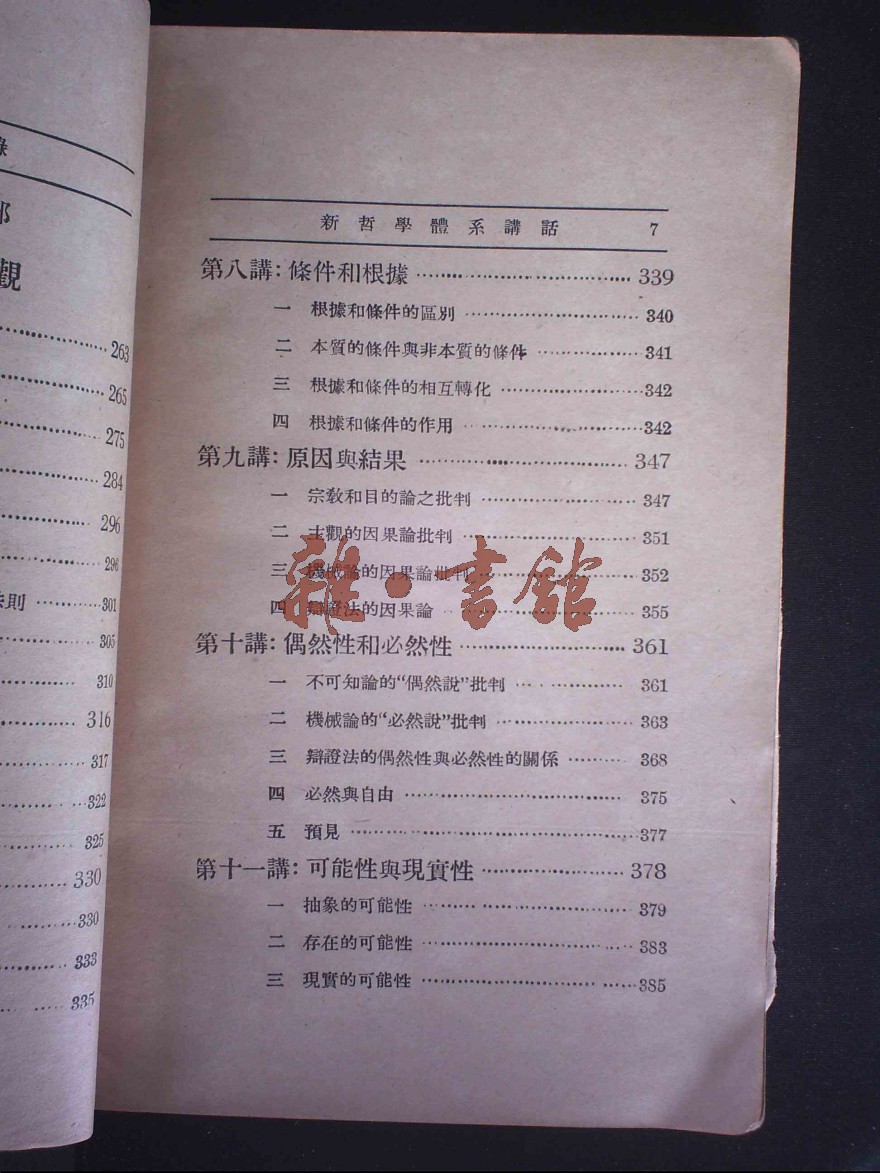 錄
部
觀
263
265
275
284
296
296
法則 301
305
310
316
317
322
325
330
330
333
335
新哲學體系講話 7
第八講：條件和根據 339
一 根據和條件的區別 340
二 本質的條件與非本質的條件 341
三 根據和條件的相互轉化 342
四 根據和條件的作用 342
第九講：原因與結果 347
一 宗敎和目的論之批判 347
二 主觀的因果論批判 351
三 機械論的因果論批判 352
四 辯證法的因果論 355
雜·書館
第十講：偶然性和必然性 361
一 不可知論的“偶然說”批判 361
二 機械論的“必然說”批判 363
三 辯證法的偶然性與必然性的關係 368
四 必然與自由 375
五 預見 377
第十一講：可能性與現實性 378
一 抽象的可能性 379
二 存在的可能性 383
三 現實的可能性 385